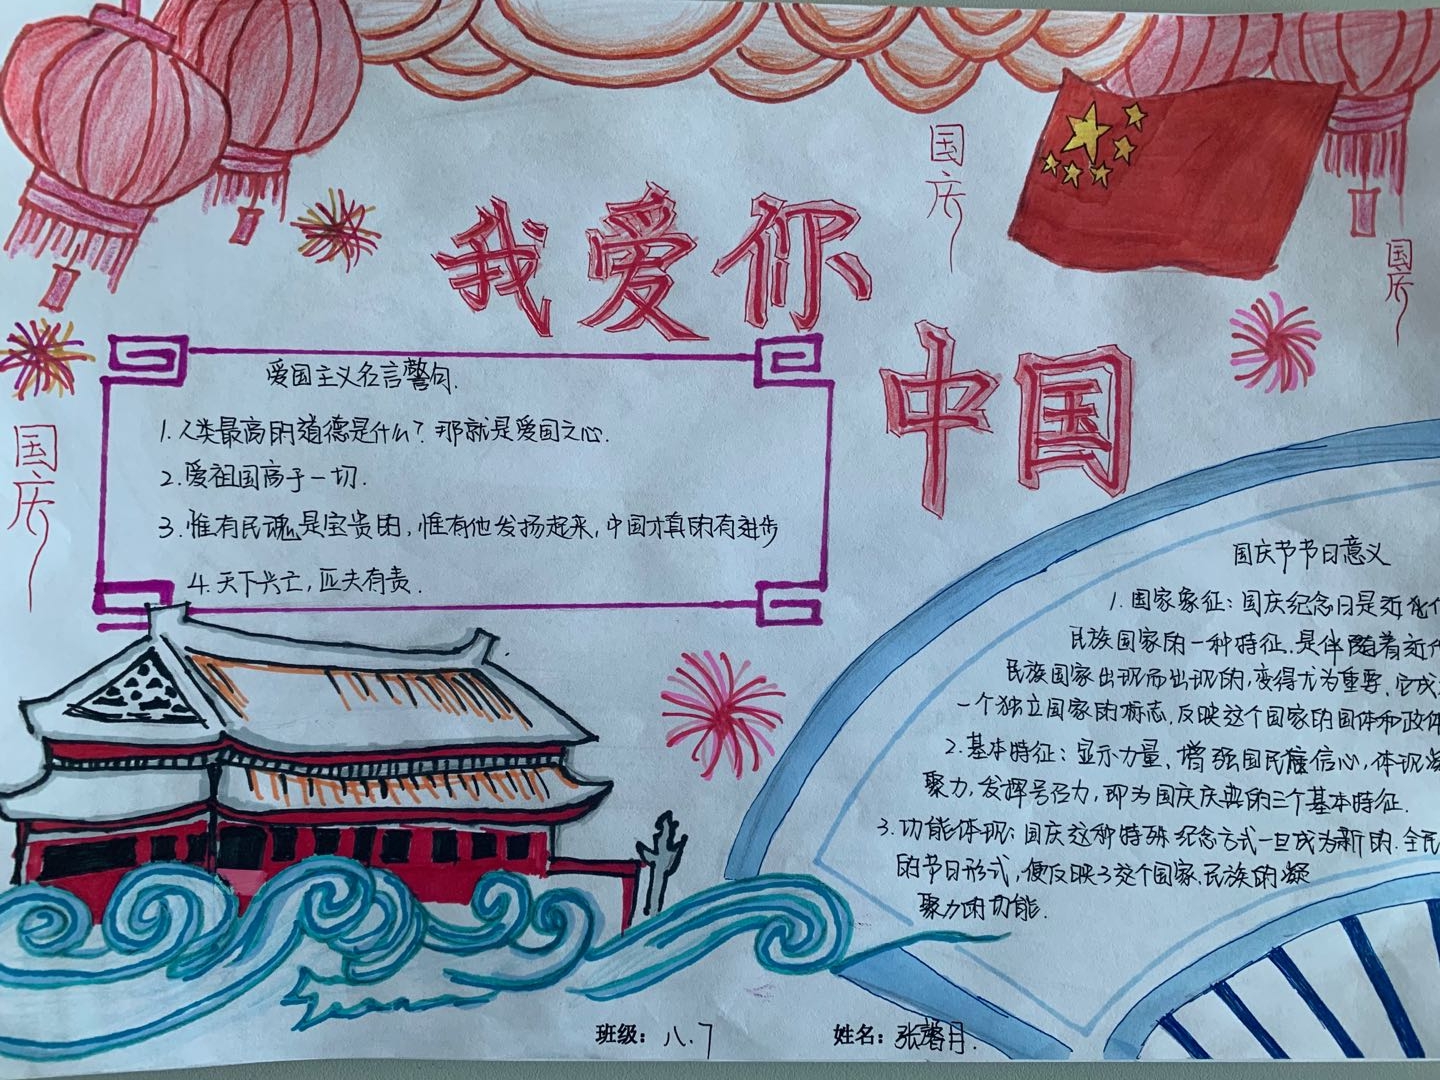 国庆
我爱你
中国
国庆
国庆
爱国主义名言警句.
1.人类最高的道德是什么?那就是爱国之心.
2.爱祖国高于一切.
3.惟有民魂是宝贵的,惟有他发扬起来,中国才真的有进步
4.天下兴亡,匹夫有责.
国庆节节日意义
1.国家象征:国庆纪念日是近代
民族国家的一种特征.是伴随着近代
民族国家出现而出现的,变得尤为重要.它成
一个独立国家的标志,反映这个国家的国体和政体
2.基本特征:显示力量、增强国民信心,体现凝
聚力,发挥号召力,即为国庆庆典的三个基本特征.
3.功能体现:国庆这种特殊纪念方式一旦成为新的.全民
的节日形式,便反映了这个国家、民族的凝
聚力的功能.
班级:八.7
姓名:张馨月.